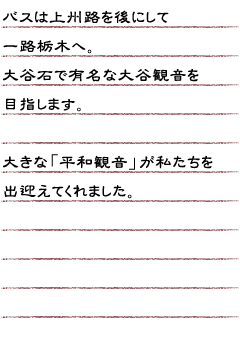 バスは上州路を後にして
一路栃木へ。
大谷石で有名な大谷観音を
目指します。
大きな「平和観音」が私たちを
出迎えてくれました。